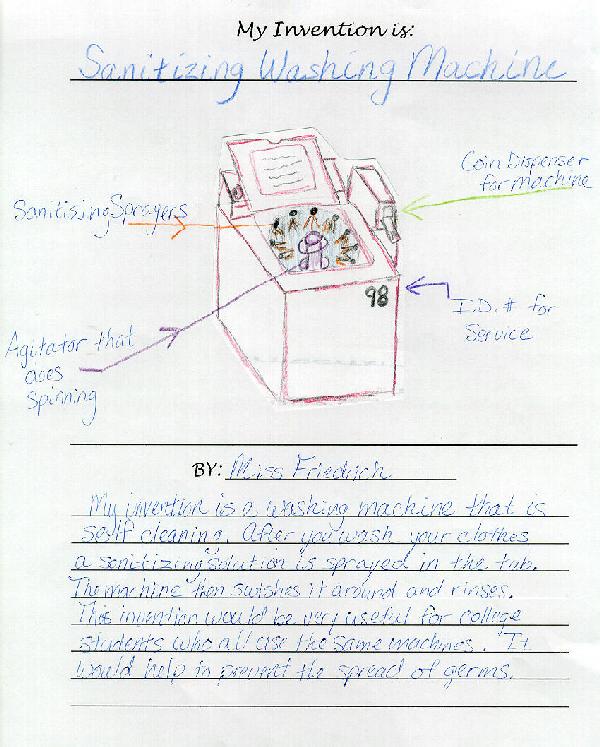 My Invention is:
Sanitizing Washing Machine
Coin Dispenser
for machine
Sanitising Sprayers
98
I.D. # for
Service
Agitator that
does
spinning
BY: Miss Friedrich
My invention is a washing machine that is
self cleaning. After you wash your clothes
a sanitizing solution is sprayed in the tub.
The machine then swishes it around and rinses.
This invention would be very useful for college
students who all use the same machines. It
would help in prevent the spread of germs.